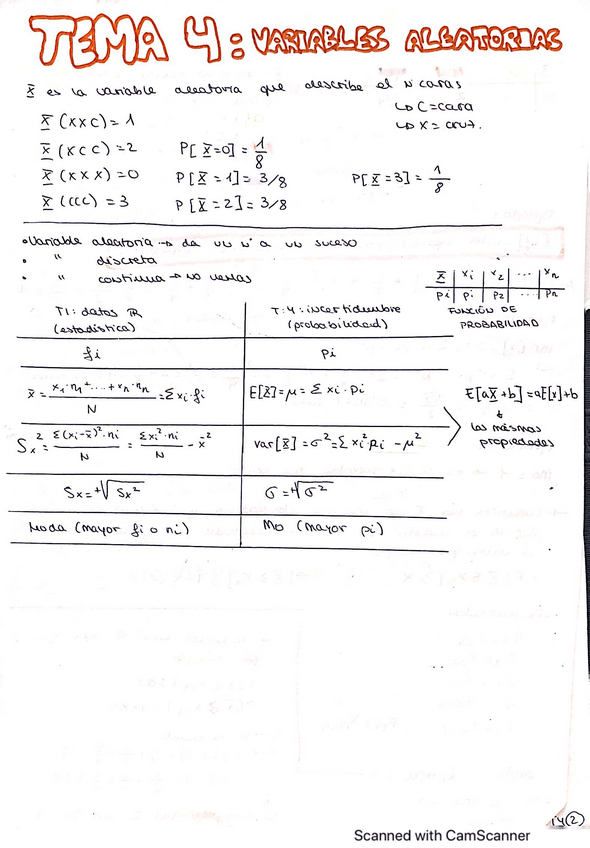 TEMA 4: VARIABLES ALEATORIAS
X̄ es la variable aleatoria que describe el nº caras
↳ C=cara
↳ X=cruz.
X̄ (XXC)=1
X̄ (XCC)=2 P[X̄=0]=1/8
X̄ (XXX)=0 P[X̄=1]=3/8 P[X̄=3]=1/8
X̄ (CCC)=3 P[X̄=2]=3/8
•Variable aleatoria → da un nº a un suceso
• " discreta
• " continua → no vemos
X̄ | xi | x2 | ... | xn
pi | pi | p2 | ... | pn
FUNCIÓN DE
PROBABILIDAD
T1: datos R
(estadística)
T.4: incertidumbre
(probabilidad)
fi
pi
x̄ = (x1·n1+....+xn·nn)/N = Σxi·fi
E[X̄]=μ= Σxi·pi
E[aX̄+b]=aE[x]+b
↓
las mismas
propiedades
Sx² = Σ(xi-x̄)²·ni/N = Σxi²·ni/N - x̄²
var[X̄]=σ²=Σxi²pi -μ²
Sx=+√Sx²
σ=+√σ²
Moda (mayor fi o ni)
Mo (mayor pi)
(2)
Scanned with CamScanner